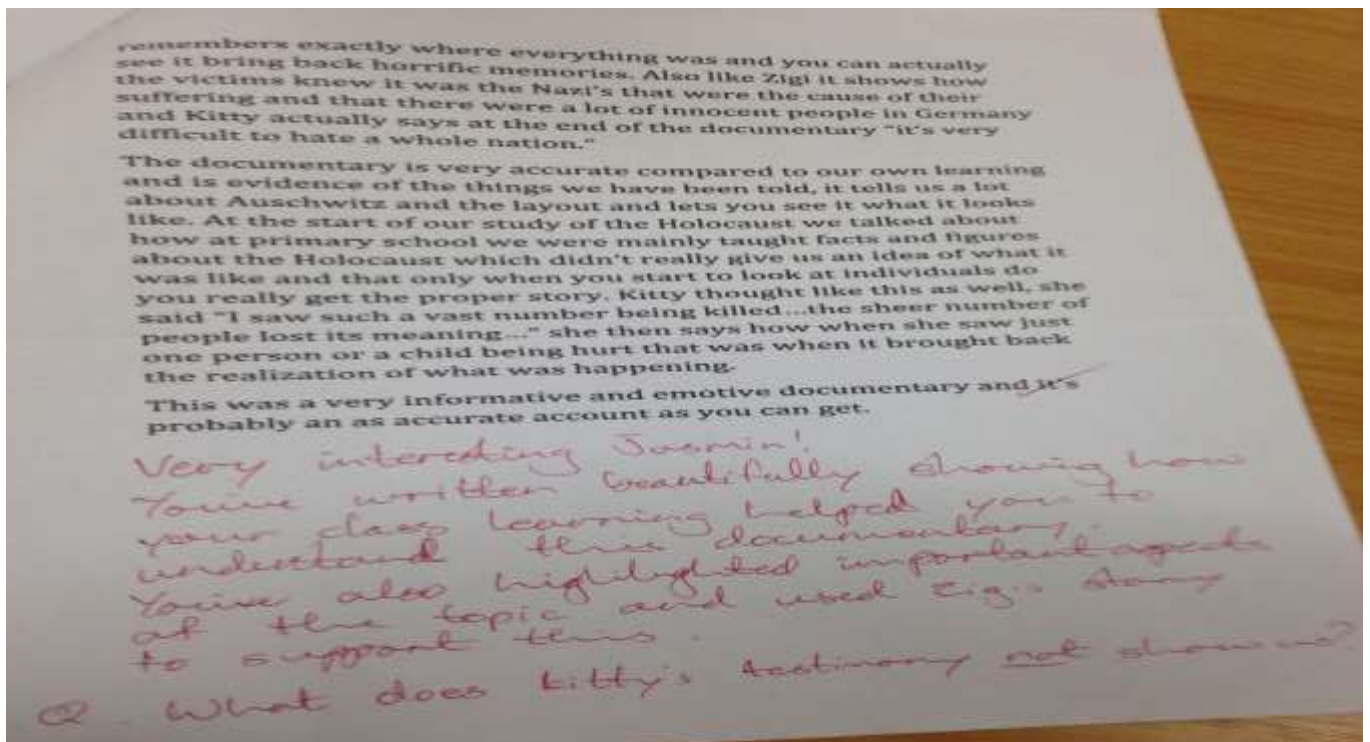 remembers exactly where everything was and you can actually
see it bring back horrific memories. Also like Zigi it shows how
the victims knew it was the Nazi's that were the cause of their
suffering and that there were a lot of innocent people in Germany
and Kitty actually says at the end of the documentary "it's very
difficult to hate a whole nation."
The documentary is very accurate compared to our own learning
and is evidence of the things we have been told, it tells us a lot
about Auschwitz and the layout and lets you see it what it looks
like. At the start of our study of the Holocaust we talked about
how at primary school we were mainly taught facts and figures
about the Holocaust which didn't really give us an idea of what it
was like and that only when you start to look at individuals do
you really get the proper story. Kitty thought like this as well, she
said "I saw such a vast number being killed...the sheer number of
people lost its meaning..." she then says how when she saw just
one person or a child being hurt that was when it brought back
the realization of what was happening.
This was a very informative and emotive documentary and it's
probably an as accurate account as you can get.
Very interesting Jasmin!
You've written beautifully showing how
your class learning helped you to
understand this documentary.
You've also highlighted important aspects
of the topic and used Zigi's story
to support this.
Q. What does Kitty's testimony not show us?